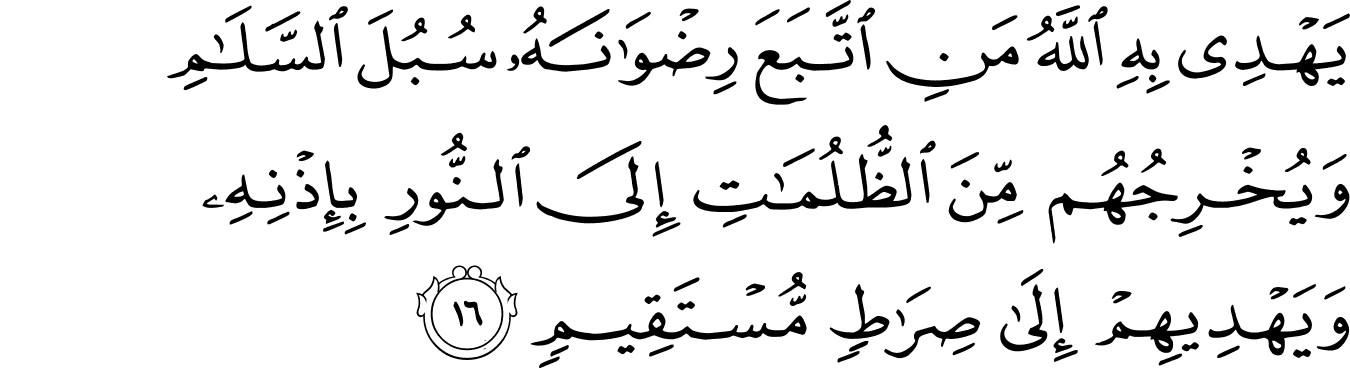 يَهْدِى بِهِ ٱللَّهُ مَنِ ٱتَّبَعَ رِضْوَٰنَهُۥ سُبُلَ ٱلسَّلَـٰمِ
وَيُخْرِجُهُم مِّنَ ٱلظُّلُمَـٰتِ إِلَى ٱلنُّورِ بِإِذْنِهِۦ
وَيَهْدِيهِمْ إِلَىٰ صِرَٰطٍ مُّسْتَقِيمٍ ١٦